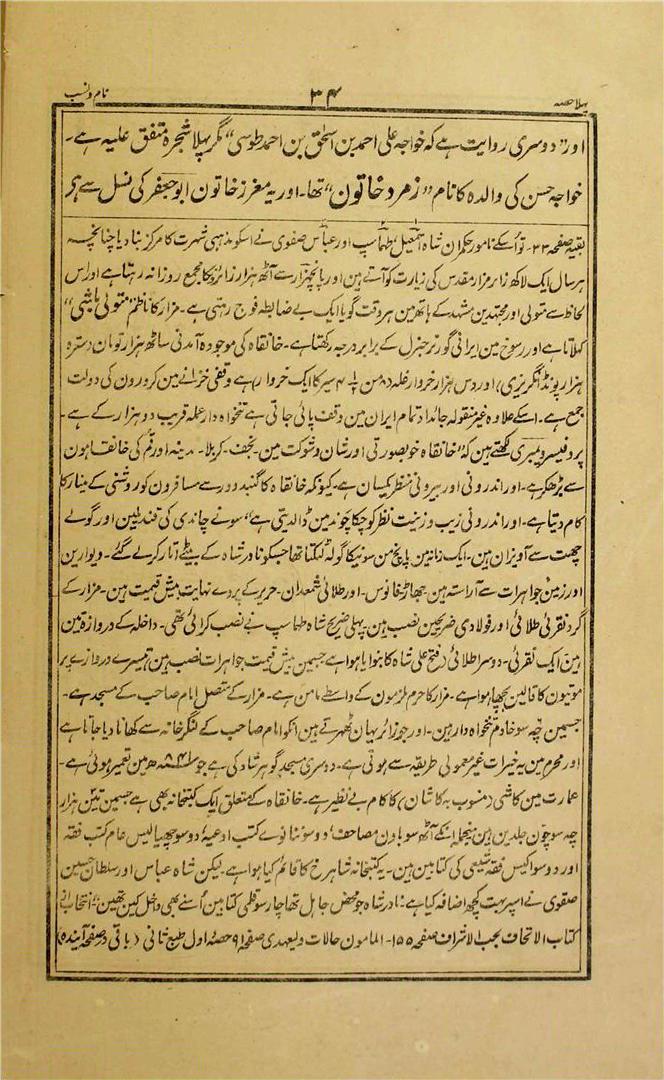 پہلا حصہ ۳۴ نام و نسب
اور ”دوسری روایت ہے کہ خواجہ علی احمد بن اسحٰق بن احمد طوسی“ مگر پہلا شجرہ متفق علیہ ہے۔
خواجہ حسن کی والدہ کا نام ”زمرد خاتون“ تھا۔ اور یہ معزز خاتون ابو جعفر کی نسل سے ہی
بقیہ صفحہ ۲۳۔ تو اُسکے نامور حکمران شاہ اسمٰعیل، طہماسپ اور عباس صفوی نے اسکو مذہبی شہرت کا مرکز بنا دیا چنانچہ
ہر سال ایک لاکھ زائر مزار مقدس کی زیارت کو آتے ہین اور پانچہزار سے آٹھ ہزار زائر ونکا مجمع روزانہ رہتا ہے اور اس
لحاظ سے متولی اور مجتہدین مشہد کے ہاتھ مین ہر وقت گویا ایک بے ضابطہ فوج رہتی ہے۔ مزار کا ناظم ”متولی باشی“
کہلاتا ہے اور رسوخ مین ایرانی گورنر جنرل کے برابر درجہ رکھتا ہے۔ خانقاہ کی موجودہ آمدنی ساٹھ ہزار تومان (سترہ
ہزار پونڈ انگریزی) اور دس ہزار خروار غلہ سیر کا ایک خروار) ہے وقفی خزانے مین کرورون کی دولت
جمع ہے۔ اسکے علاوہ غیر منقولہ جائداد تمام ایران مین وقف پائی جاتی ہے تنخواہ دار عملہ قریب دو ہزار کے ہے۔
پروفیسر ویمبری لکھتے ہین کہ ”خانقاہ خوبصورتی اور شان و شوکت مین۔ نجف۔ کربلا۔ مدینہ اور قُم کی خانقاہون
سے بڑھکر ہے۔ اور اندرونی اور بیرونی منظر یکسان ہے۔ کیونکہ خانقاہ کا گنبد دور سے مسافرون کو روشنی کے مینار کا
کام دیتا ہے۔ اور اندرونی زیب و زینت نظر کو چکا چوند مین ڈالدیتی ہے“ سونے چاندی کی قندیلین اور گولے
چھت سے آویزان ہین۔ ایک زمانہ مین پانچ من سونیکا گولہ لٹکتا تھا جسکو نادر شاہ کے بیٹے اُتار کر لے گئے۔ دیوارین
اور زمین جواہرات سے آراستہ ہین جھاڑ فانوس۔ اور طلائی شمعدان۔ حریر کے پردے نہایت بیش قیمت ہین۔ مزار کے
گرد نقرئی طلائی اور فولادی ضریحین نصب ہین پہلی ضریح شاہ طہماسپ نے نصب کرائی تھی۔ داخلہ کے دروازہ تین
ہین ایک نقرئی۔ دوسرا طلائی (فتح علی شاہ کا بنوایا ہوا ہے جسمین بیش قیمت جواہرات نصب ہین تیسرے دروازے پر
موتیون کا قالین بچھا ہوا ہے۔ مزار کا حرم ملزمون کے واسطے مامن ہے۔ مزار کے متصل امام صاحب کی مسجد ہے۔
جسمین چھ سو خادم تنخواہ دار ہین۔ اور جو زائر یہان ٹھہرتے ہین انکو امام صاحب کے لنگر خانہ سے کھانا دیا جاتا ہے
اور محرم مین یہ خیرات غیر معمولی طریقہ سے ہوتی ہے۔ دوسری مسجد گوہر شاد کی ہے جو مین تعمیر ہوئی ہے۔
عمارت مین کاشی (منسوب بہ کاشان) کا کام بے نظیر ہے۔ خانقاہ کے متعلق ایک کتبخانہ بھی ہے جسمین تین ہزار
چھ سو چون جلدین ہین منجملہ اُنکے آٹھ سو باون مصاحف، دو سو ننانوے کتب ادعیہ، دو سو چھیالیس عام کتب فقہ
اور دو سو اکیس فقہ شیعی کی کتابین ہین۔ یہ کتبخانہ شاہرخ کا قائم کیا ہوا ہے لیکن شاہ عباس اور سلطان حسین
صفوی نے اسپر بہت کچھ اضافہ کیا ہے: نادر شاہ جو محض جاہل تھا چار سو قلمی کتابین اُسنے بھی داخل کین تھین“ انتخاب از
کتاب الاتحاف بحب الاشراف صفحہ ۱۵۵۔ المامون حالات ولیعہدی صفحہ ۹۱ حصہ اول طبع ثانی (باقی در صفحہ آیندہ)